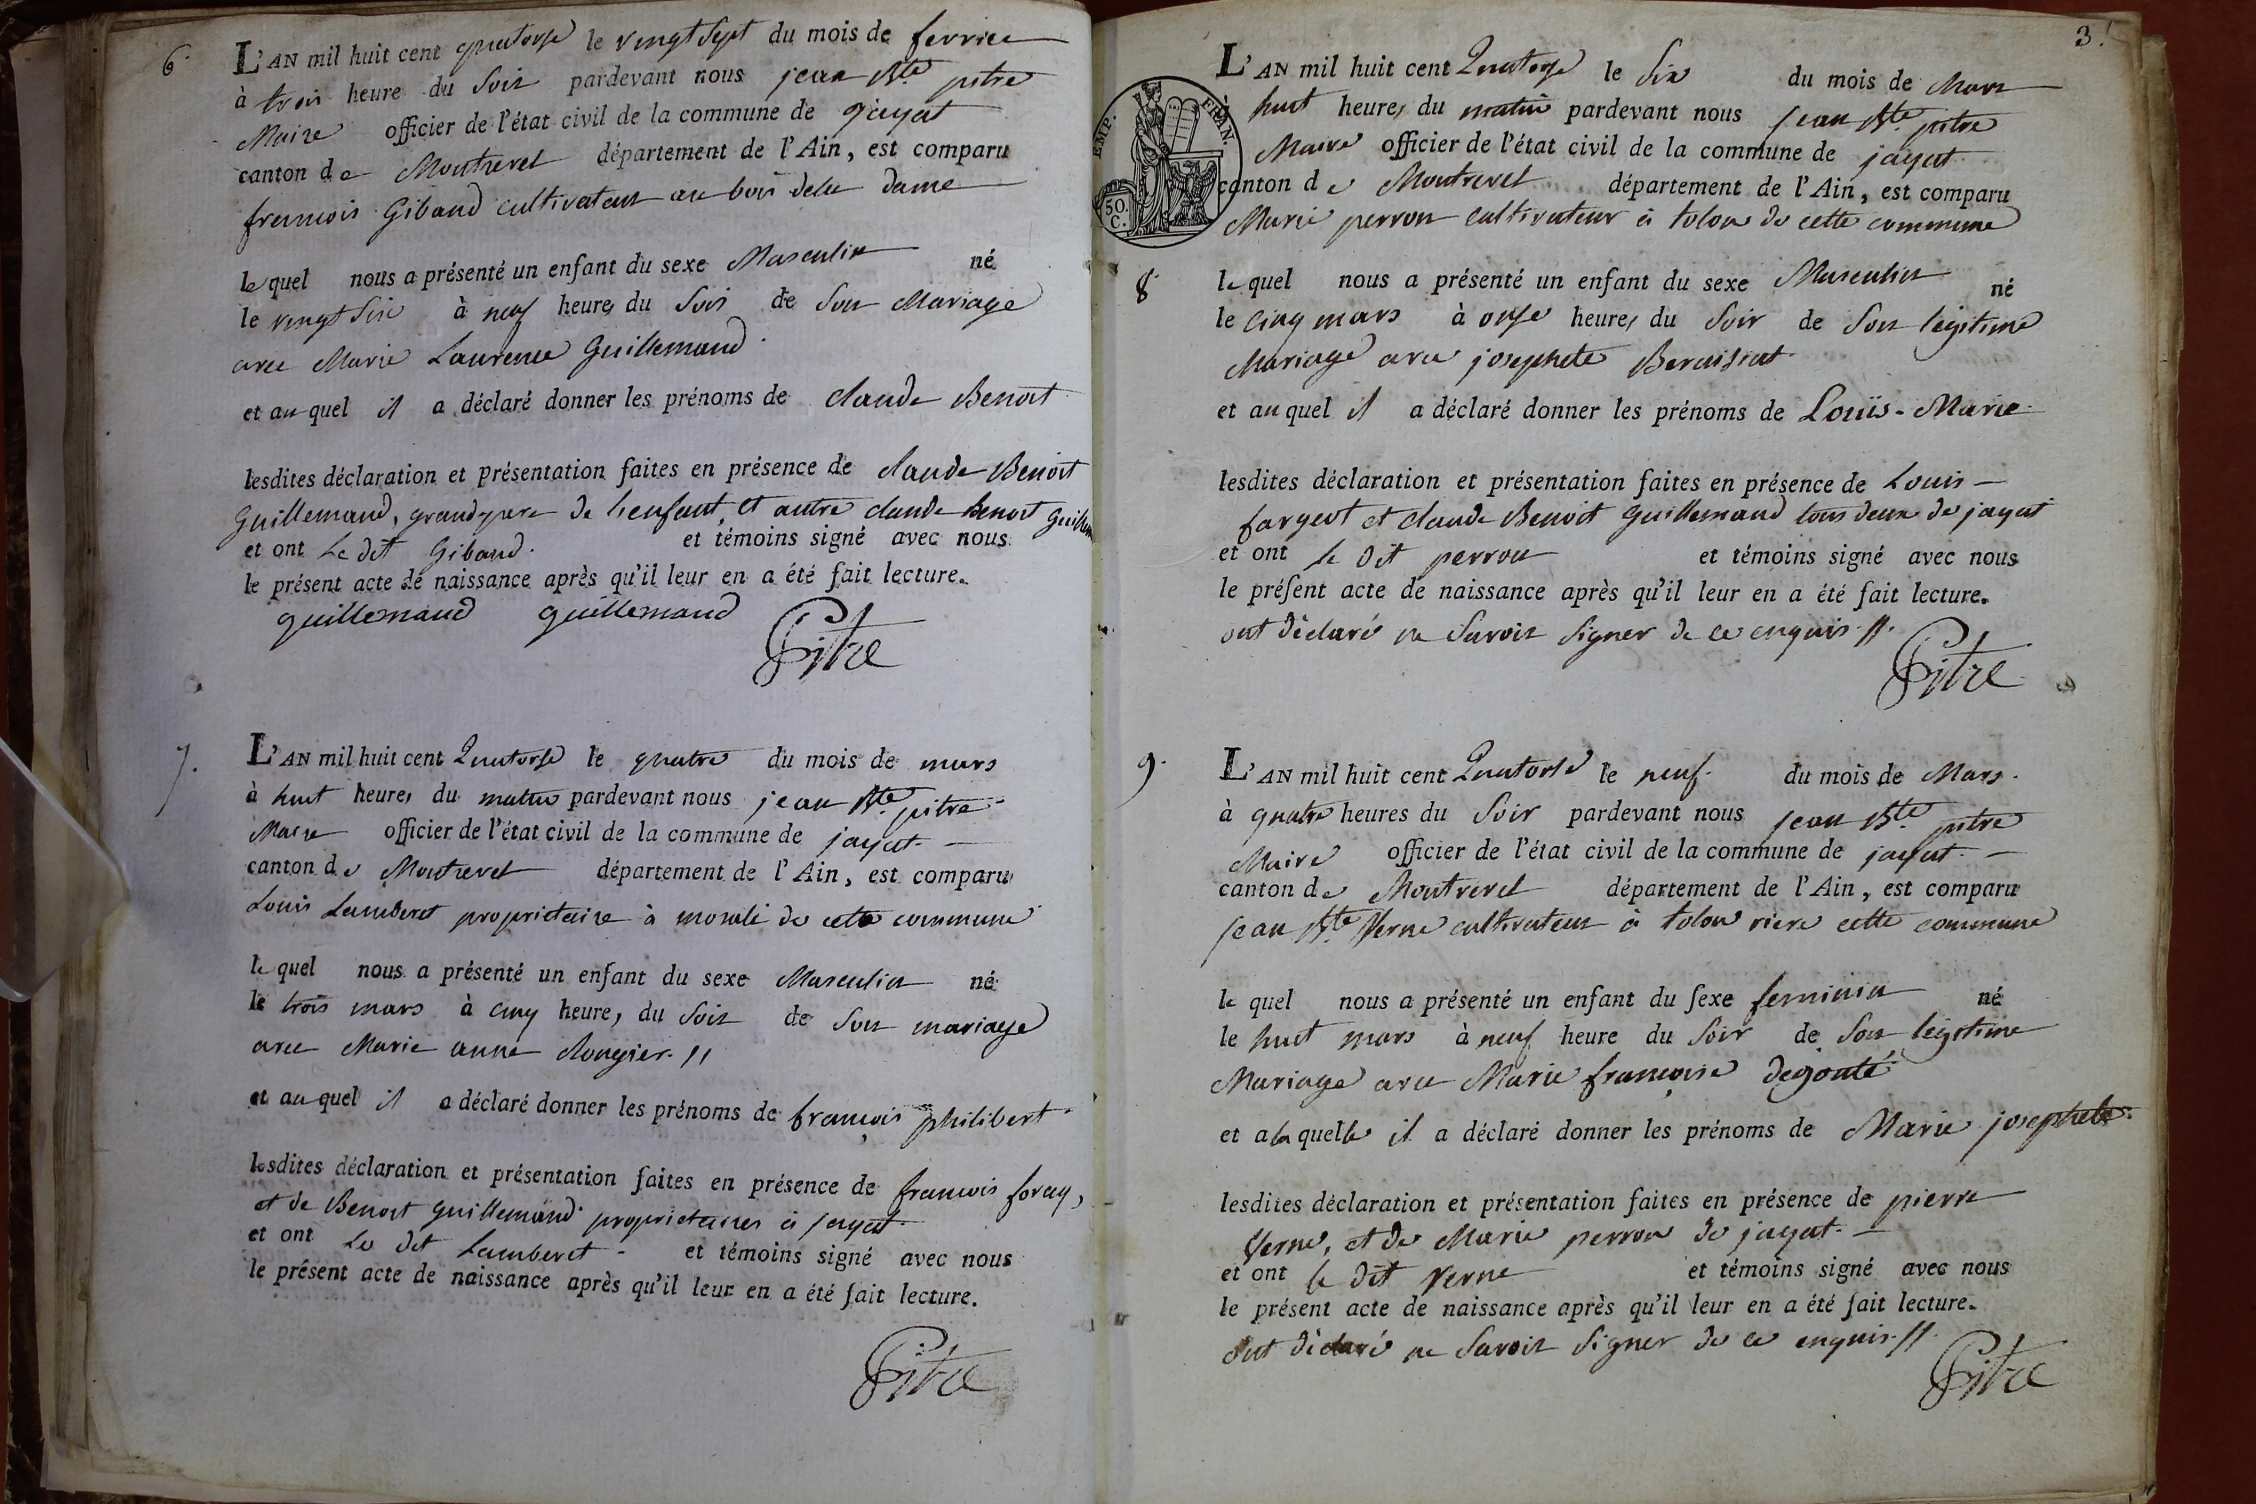 6.
L'AN mil huit cent quatorse le vingt sept du mois de fevrier
à trois heure du Soir pardevant nous jean Bte pitre
Maire officier de l'état civil de la commune de jayat
canton de Montrevel département de l'Ain, est comparu
francois Giband cultivateur au bois dela dame
lequel nous a présenté un enfant du sexe Masculin né
le vingt Six à neuf heures du Soir de Son Mariage
avec Marie Laurence Guillemaud.
et auquel il a déclaré donner les prénoms de claude Benoit
lesdites déclaration et présentation faites en présence de claude Benoit
Guillemaud, grand pere de lenfant, et autre claude Benoit Guillem
et ont Le dit Giband. et témoins signé avec nous
le présent acte de naissance après qu'il leur en a été fait lecture.
guillemaud guillemaud Pitre
7.
L'AN mil huit cent Quatorse le quatre du mois de mars
à huit heures du matin pardevant nous jean Bte pitre
Maire officier de l'état civil de la commune de jayat.
canton de Montrevel département de l'Ain, est comparu
Louis Lamberet proprietaire à de cette commune
lequel nous a présenté un enfant du sexe Masculin né
le trois mars à cinq heures du Soir de Son mariage
avec Marie anne //
et auquel il a déclaré donner les prénoms de françois philibert
lesdites déclaration et présentation faites en présence de francois foray,
et de Benoit guillemaud proprietaires à jayat.
et ont Le dit Lamberet et témoins signé avec nous
le présent acte de naissance après qu'il leur en a été fait lecture.
Pitre
3.
EMP. FRAN.
50. C.
L'AN mil huit cent Quatorse le Six du mois de Mars
à huit heures du matin pardevant nous jean Bte pitre
Maire officier de l'état civil de la commune de jayat
canton de Montrevel département de l'Ain, est comparu
Marie perron cultivateur à tolon de cette commune
8.
lequel nous a présenté un enfant du sexe Masculin né
le cinq mars à onse heures du Soir de Son legitime
Mariage avec josephete
et auquel il a déclaré donner les prénoms de Louis-Marie
lesdites déclaration et présentation faites en présence de Louis
fargeot et claude Benoit Guillemaud tous deux de jayat
et ont le dit perron et témoins signé avec nous
le présent acte de naissance après qu'il leur en a été fait lecture.
ont déclaré ne Savoir Signer de ce enquis //.
Pitre
9.
L'AN mil huit cent Quatorse le neuf. du mois de Mars.
à quatre heures du Soir pardevant nous jean Bte pitre
Maire officier de l'état civil de la commune de jayat.
canton de Montrevel département de l'Ain, est comparu
jean Bte Verne cultivateur à tolon riere cette commune
lequel nous a présenté un enfant du sexe feminin né
le huit mars à neuf heure du Soir de Son legitime
Mariage avec Marie françoise degouté
et alaquelle il a déclaré donner les prénoms de Marie josephete.
lesdites déclaration et présentation faites en présence de pierre
Verne, et de Marie perron de jayat.
et ont le dit Verne et témoins signé avec nous
le présent acte de naissance après qu'il leur en a été fait lecture.
ont déclaré ne Savoir Signer de ce enquis //.
Pitre